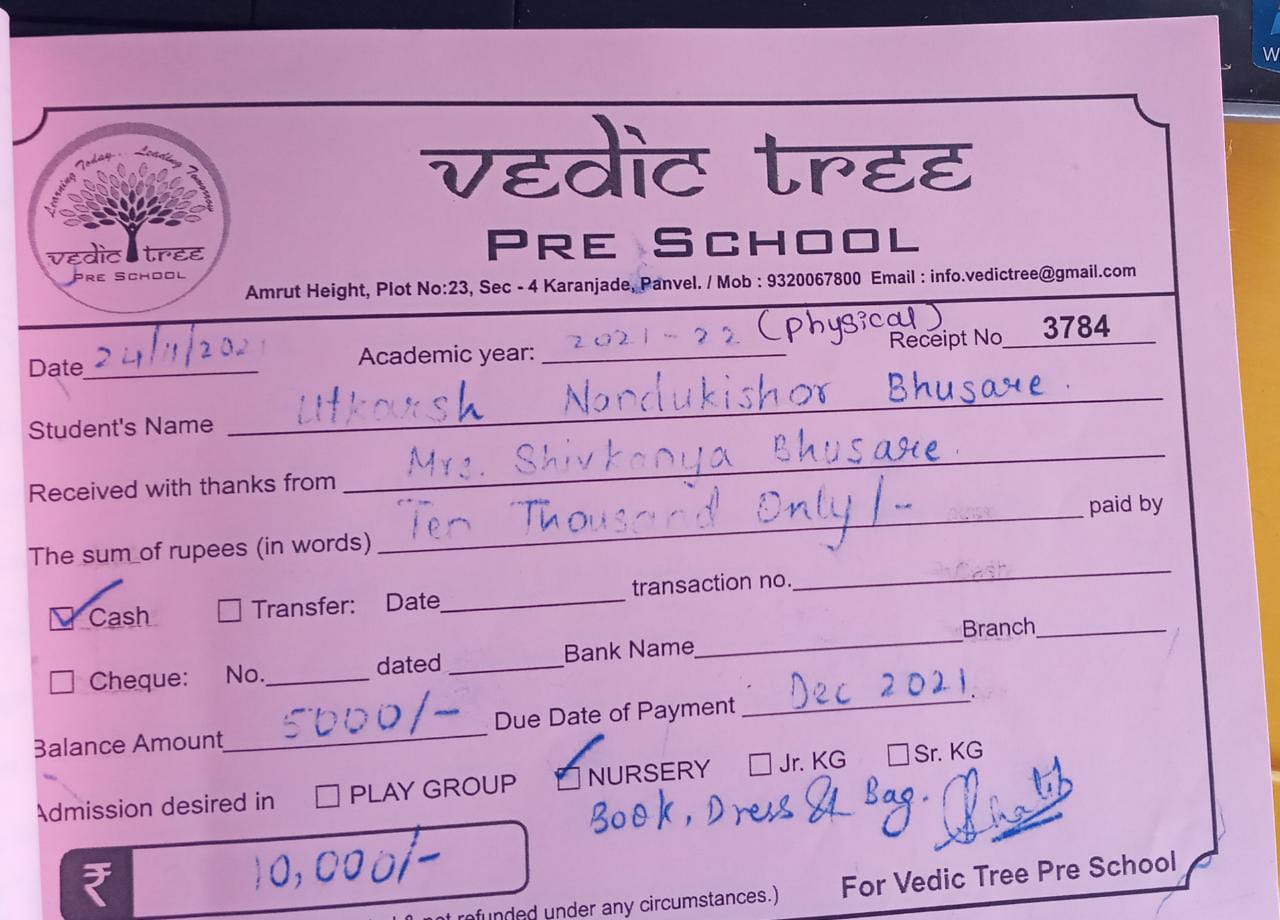 Learning Today... Leading Tomorrow
vedic tree
PRE SCHOOL
vedic tree
PRE SCHOOL
Amrut Height, Plot No:23, Sec - 4 Karanjade, Panvel. / Mob : 9320067800 Email : info.vedictree@gmail.com
Date 24/11/2021 Academic year: 2021-22 (physical) Receipt No 3784
Student's Name Utkarsh Nandukishor Bhusare.
Received with thanks from Mrs. Shivkanya Bhusare.
The sum of rupees (in words) Ten Thousand Only/- paid by
Cash Transfer: Date transaction no.
Cheque: No. dated Bank Name Branch
Balance Amount 5000/- Due Date of Payment Dec 2021.
Admission desired in PLAY GROUP NURSERY Jr. KG Sr. KG
Book, Dress & Bag.
₹ 10,000/-
For Vedic Tree Pre School
not refunded under any circumstances.)